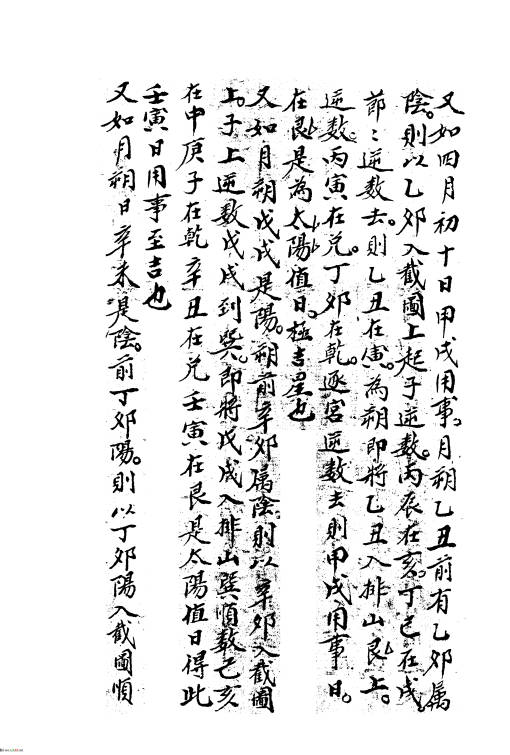 又如四月初十日甲戌用事。月朔乙丑前有乙卯属
陰。則以乙卯入截圖上起子逆数。丙辰在亥。丁巳在戌。
節〻逆数去。則乙丑在寅。為朔即將乙丑入排山艮上。
逆数。丙寅在兌。丁卯在乾。逐宮逆数去則甲戌用事日。
在艮是為太陽值日。極吉星也
又如月朔戊戌是陽。朔前辛卯属陰。則以辛卯入截圖
上。子上逆数戊戌到巽。即將戊戌入排山巽順数己亥
在中庚子在乾辛丑在兌壬寅在艮是太陽值日得此
壬寅日用事至吉也
又如月朔日辛未是陰。前丁卯陽。則以丁卯陽入截圖順